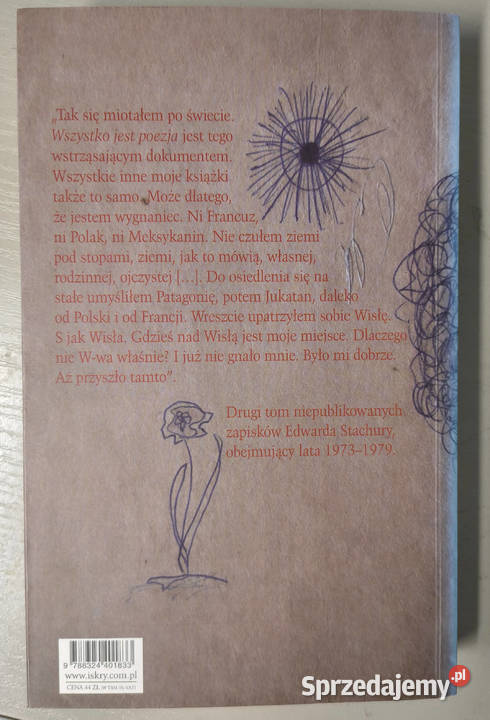 „Tak się miotałem po świecie.
Wszystko jest poezja jest tego
wstrząsającym dokumentem.
Wszystkie inne moje książki
także to samo. Może dlatego,
że jestem wygnaniec. Ni Francuz,
ni Polak, ni Meksykanin. Nie czułem ziemi
pod stopami, ziemi, jak to mówią, własnej,
rodzinnej, ojczystej [...]. Do osiedlenia się na
stałe umyśliłem Patagonię, potem Jukatan, daleko
od Polski i od Francji. Wreszcie upatrzyłem sobie Wisłę.
S jak Wisła. Gdzieś nad Wisłą jest moje miejsce. Dlaczego
nie W-wa właśnie? I już nie gnało mnie. Było mi dobrze.
Aż przyszło tamto”.
Drugi tom niepublikowanych
zapisków Edwarda Stachury,
obejmujący lata 1973–1979.
9 788324 401833
www.iskry.com.pl
CENA 44 ZŁ
Sprzedajemy.pl